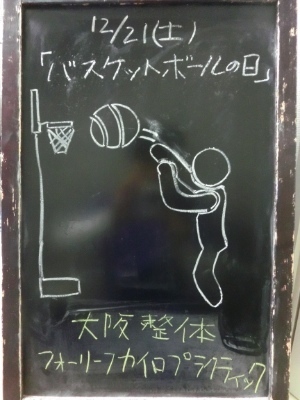 12/21(土)
「バスケットボールの日」
大阪整体
フォーリーフカイロプラクティック